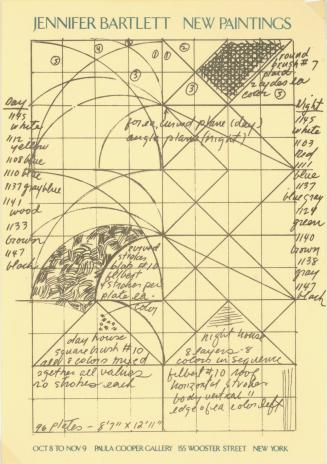 JENNIFER BARTLETT NEW PAINTINGS
round
brush # 7
plaid
2 a
color 3
3 4 1 1 2
3
3
Day
1145
white
1112
yellow
1108 blue
1110 blue
1137 gray blue
1141
wood
1133
brown
1147
black
Night
1145
white
1103
red
1111
blue
1137
blue gray
1124
green
1140
brown
1138
gray
1147
black
for ea. curved plane (day)
angle plane (night)
curved
strokes
#10
filbert
4 strokes per
plate ea.
color
day house
square brush #10
8 colors mixed
together all values
20 strokes each
night house
8 layers - 8
colors in sequence
filbert #10 roof
horizontal strokes
body vertical "
edge of ea color left
96 plates - 8'7" x 12'11"
OCT 8 TO NOV 9 PAULA COOPER GALLERY 155 WOOSTER STREET NEW YORK